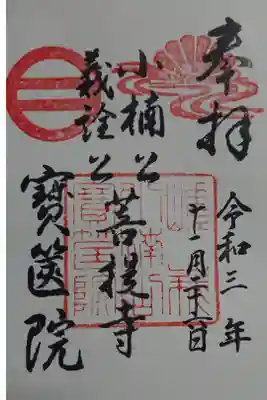 奉拝
令和三年
十一月二十一日
小楠公
義詮公
菩提寺
寳篋院